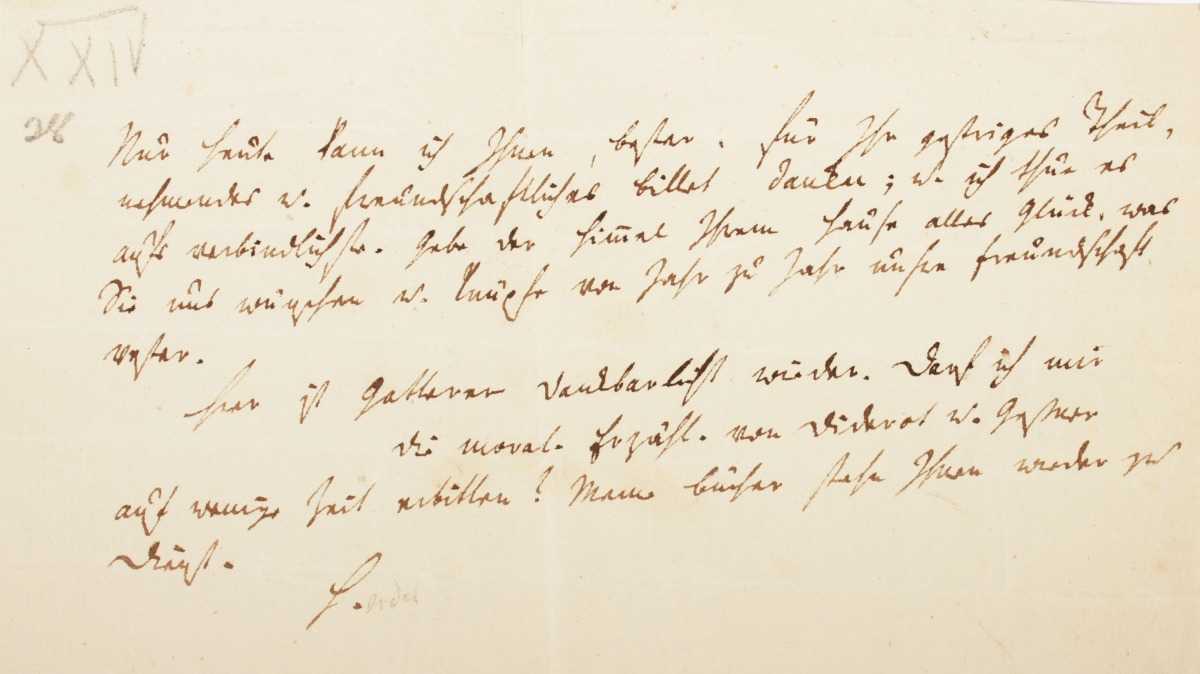 XXIV
28
Nur heute kann ich Ihnen, bester, für Ihr gestriges Theil,
nehmendes u. freundschaftliches billet danken; u. ich thue es
aufs verbindlichste. Gebe der Himmel Ihrem Hause alles Glück, was
Sie uns wünschen u. knüpfe von Jahr zu Jahr unsre Freundschaft
vester.
Hier ist Gatterer dankbarlichst wieder. Darf ich mir
die moral. Erzähl. von Diderot u. Geßner
auf wenige Zeit erbitten? Meine bücher stehn Ihnen wieder zu
Dienst.
H.erder